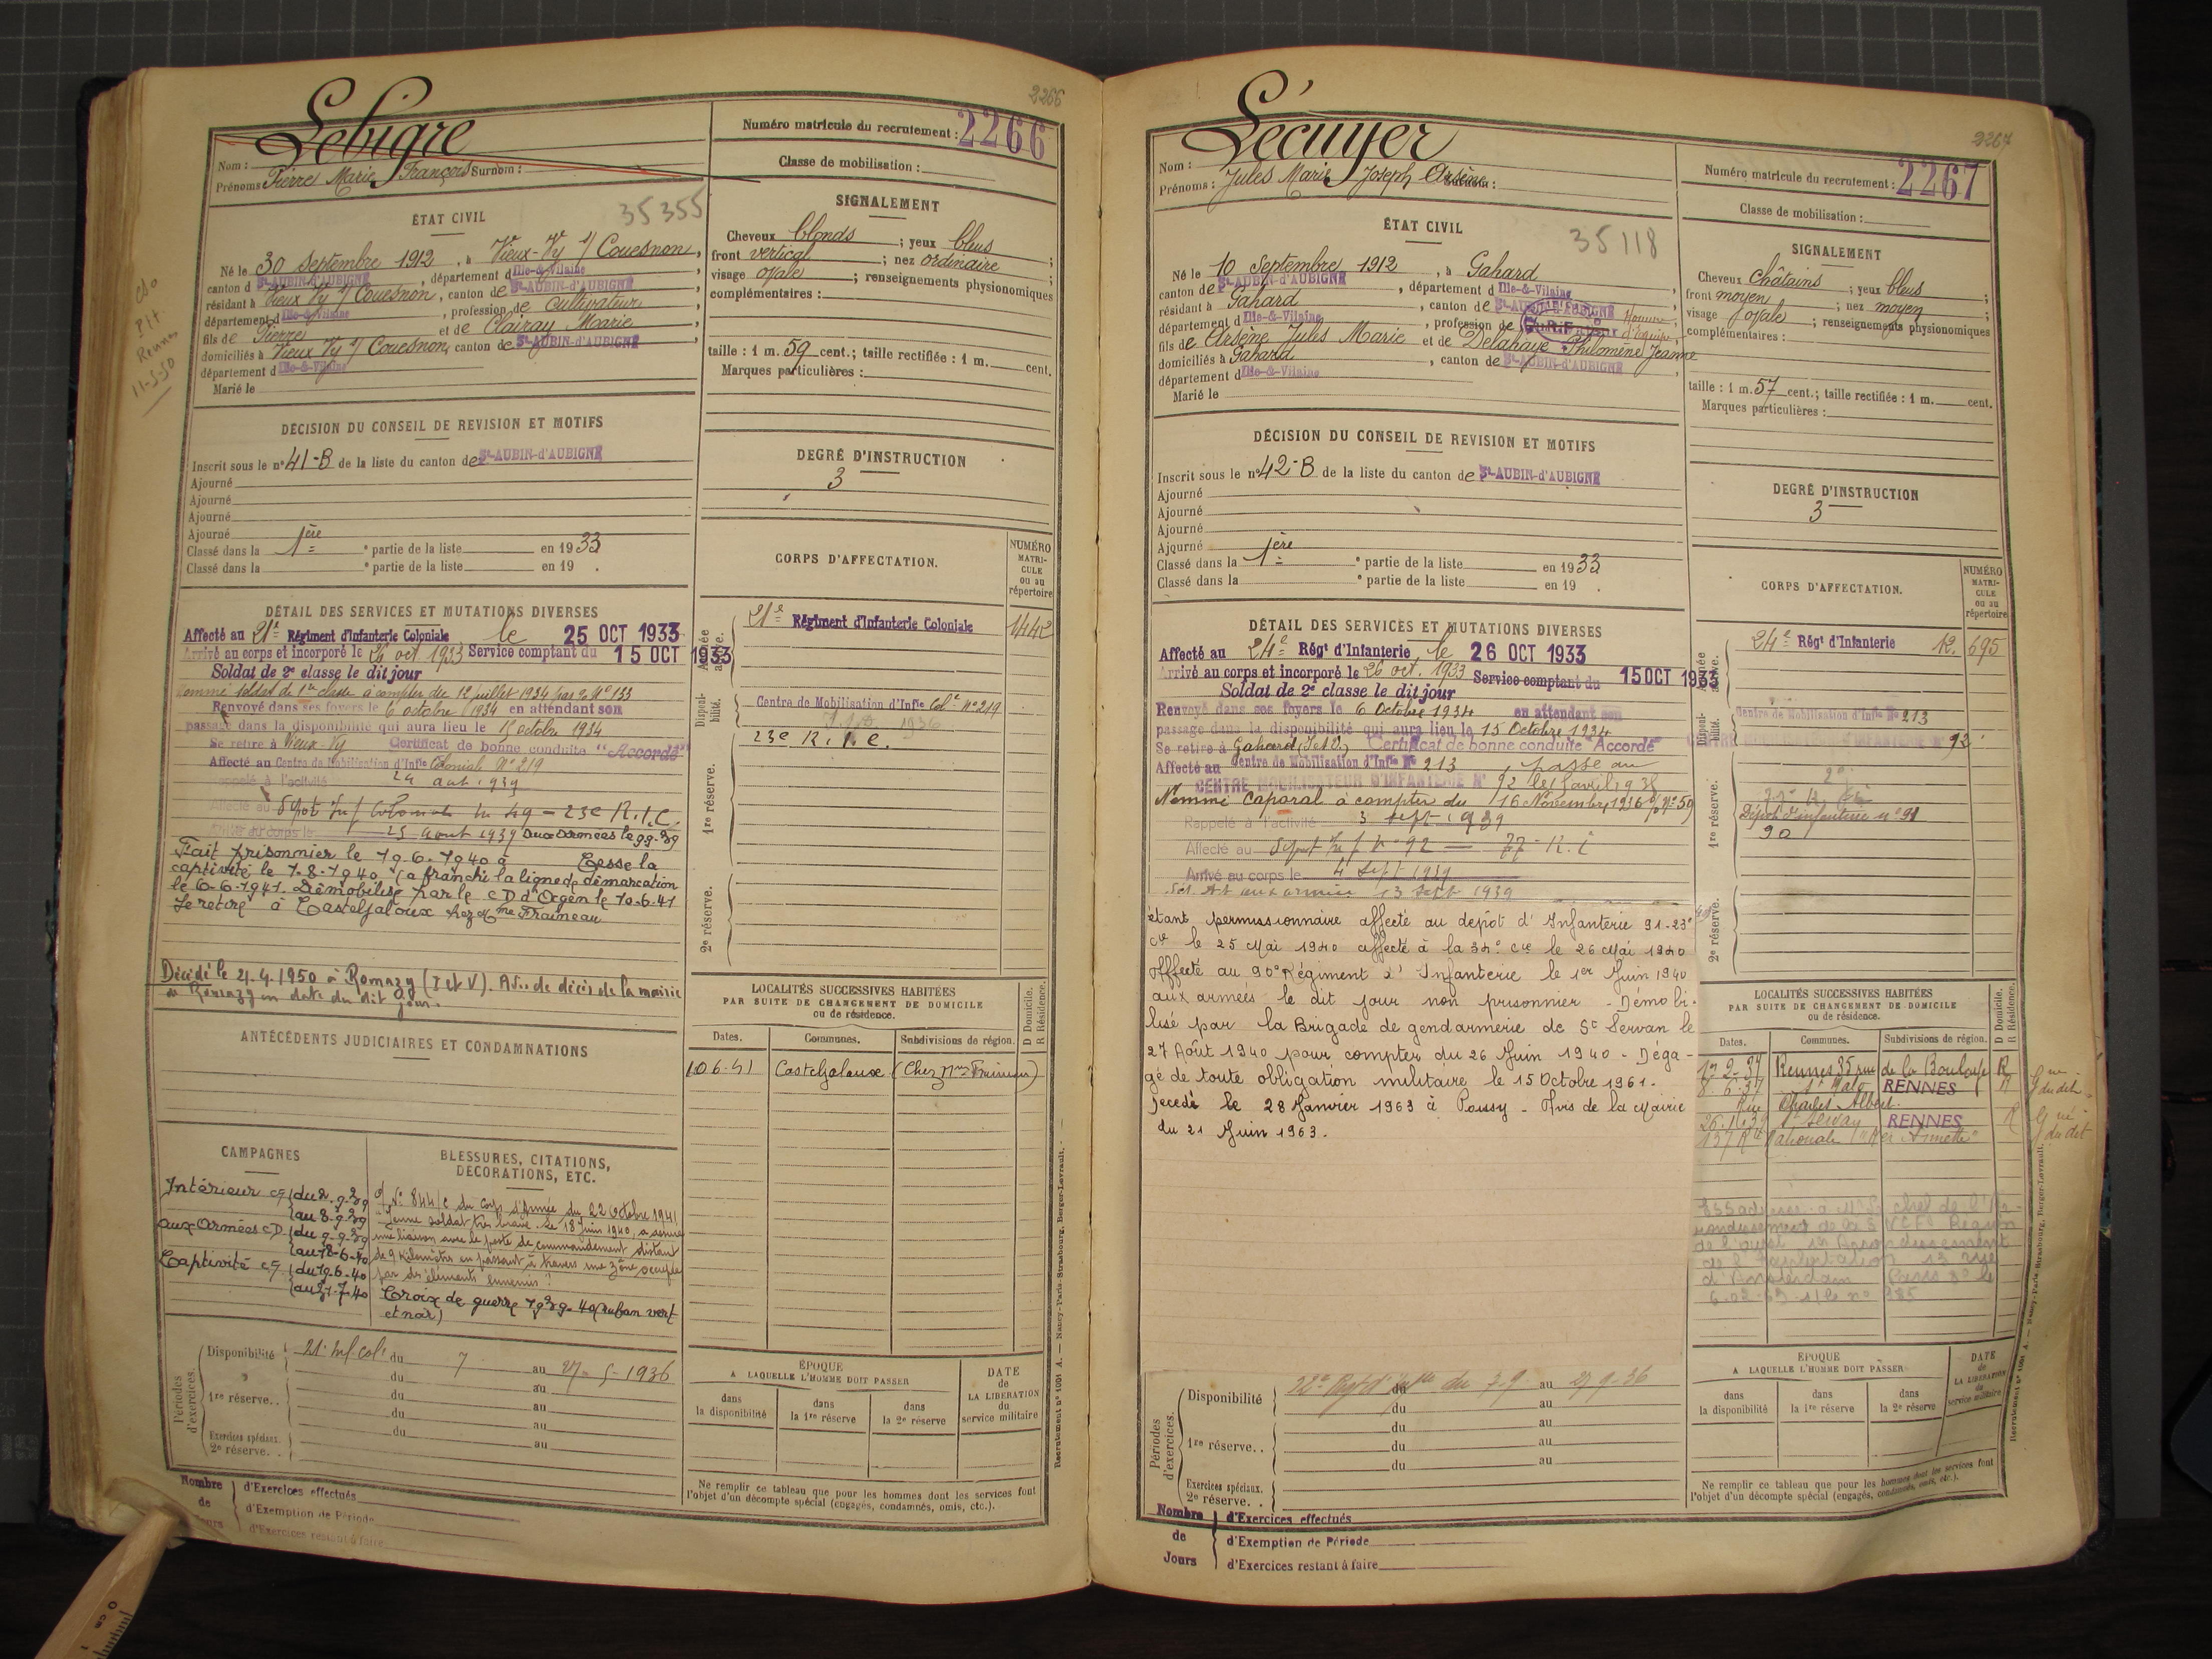 2266
Lebigre
Nom :
Prénoms Pierre Marie François Surnom :
Numéro matricule du recrutement : 2266
Classe de mobilisation :
ÉTAT CIVIL
35355
Né le 30 Septembre 1912, à Vieux-Vy s/ Couesnon,
canton d St-AUBIN-d'AUBIGNÉ, département d Ille-&-Vilaine,
résidant à Vieux Vy s/ Couesnon, canton de St-AUBIN-d'AUBIGNÉ,
département d Ille-&-Vilaine, profession de Cultivateur,
fils de Pierre et de Clairay Marie,
domiciliés à Vieux Vy s/ Couesnon, canton de St-AUBIN-d'AUBIGNÉ,
département d Ille-&-Vilaine
Marié le
Rennes
11-5-50
SIGNALEMENT
Cheveux blonds ; yeux bleus ;
front vertical ; nez ordinaire ;
visage ovale ; renseignements physionomiques
complémentaires :
taille : 1 m. 59 cent. ; taille rectifiée : 1 m. cent.
Marques particulières :
DÉCISION DU CONSEIL DE REVISION ET MOTIFS
Inscrit sous le n° 41-B de la liste du canton de St-AUBIN-d'AUBIGNÉ
Ajourné
Ajourné
Ajourné
Ajourné
Classé dans la 1ère partie de la liste en 1933
Classé dans la partie de la liste en 19 .
DEGRÉ D'INSTRUCTION
3
DÉTAIL DES SERVICES ET MUTATIONS DIVERSES
Affecté au 21e Régiment d'Infanterie Coloniale le 25 OCT 1933
Arrivé au corps et incorporé le 26 oct 1933 Service comptant du 15 OCT 1933
Soldat de 2e classe le dit jour
Nommé soldat de 1re classe à compter du 12 juillet 1934 par o. N° 133
Renvoyé dans ses foyers le 6 octobre 1934 en attendant son
passage dans la disponibilité qui aura lieu le 15 octobre 1934
Se retire à Vieux-Vy Certificat de bonne conduite "Accordé"
Affecté au Centre de Mobilisation d'Infie Colonial N° 219
Rappelé à l'activité 24 aout 1939
Affecté au Dépot Inf Coloniale N 49 - 23e R.I.C.
Arrivé au corps le 25 Aout 1939 aux armées le 9.9.39
Fait prisonnier le 19.6.1940 à Cesse la
captivité le 7.8.1940 (a franchi la ligne de démarcation
le 6-6-1941. Démobilisé par le C D d'Agen le 10.6.41
Se retire à Casteljaloux chez Mme Fraineau
Décédé le 21.4.1950 à Romazy (I et V). Avis de décès de la mairie
de Romazy en date du dit jour.
CORPS D'AFFECTATION.
NUMÉRO MATRICULE ou au répertoire
Armée active.
21e Régiment d'Infanterie Coloniale 1442
Disponibilité.
Centre de Mobilisation d'Infie Cole N° 219
23e R.I.C.
1re réserve.
2e réserve.
ANTÉCÉDENTS JUDICIAIRES ET CONDAMNATIONS
LOCALITÉS SUCCESSIVES HABITÉES
PAR SUITE DE CHANGEMENT DE DOMICILE
ou de résidence.
D Domicile.
R Résidence.
Dates. Communes. Subdivisions de région.
10.6.41 Casteljaloux (Chez Mme Fraineau)
CAMPAGNES
Intérieur CS (du 2.9.39
(au 8.9.39
aux Armées C.D. (du 9.9.39
(au 18-6-40
Captivité CS (du 19-6-40
(au 31-7-40
BLESSURES, CITATIONS,
DÉCORATIONS, ETC.
N° 844/C du Corps d'Armée du 22 octobre 1941
"Jeune soldat très brave. Le 18 Juin 1940, a assuré
une liaison avec le poste de commandement distant
de 9 Kilomètres en passant à travers une zône occupée
par des éléments ennemis."
Croix de guerre 1939-40 (ruban vert
et noir)
Périodes d'exercices.
Disponibilité 21e Inf. cole du 7 au 27-5-1936
du au
1re réserve.. du au
du au
du au
Exercices spéciaux.
2e réserve. . au
ÉPOQUE
A LAQUELLE L'HOMME DOIT PASSER
dans la disponibilité
dans la 1re réserve
dans la 2e réserve
DATE de LA LIBÉRATION du service militaire
Ne remplir ce tableau que pour les hommes dont les services font
l'objet d'un décompte spécial (engagés, condamnés, omis, etc.).
Nombre de Jours
d'Exercices effectués
d'Exemption de Période
d'Exercices restant à faire
Recrutement n° 1091 A. — Nancy-Paris-Strasbourg, Berger-Levrault.
2267
Lécuyer
Nom :
Prénoms : Jules Marie Joseph Arsène Surnom :
Numéro matricule du recrutement : 2267
Classe de mobilisation :
ÉTAT CIVIL
35118
Né le 10 Septembre 1912, à Gahard
canton de St-AUBIN-d'AUBIGNÉ, département d Ille-&-Vilaine
résidant à Gahard, canton de St-AUBIN-d'AUBIGNÉ
département d Ille-&-Vilaine, profession de Homme d'équipe
fils de Arsène Jules Marie et de Delahaye Philomène Jeanne
domiciliés à Gahard, canton de St-AUBIN-d'AUBIGNÉ,
département d Ille-&-Vilaine
Marié le
SIGNALEMENT
Cheveux châtains ; yeux bleus ;
front moyen ; nez moyen ;
visage ovale ; renseignements physionomiques
complémentaires :
taille : 1 m. 57 cent. ; taille rectifiée : 1 m. cent.
Marques particulières :
DÉCISION DU CONSEIL DE REVISION ET MOTIFS
Inscrit sous le n° 42-B de la liste du canton de St-AUBIN-d'AUBIGNÉ
Ajourné
Ajourné
Ajourné
Ajourné
Classé dans la 1ère partie de la liste en 1933
Classé dans la partie de la liste en 19 .
DEGRÉ D'INSTRUCTION
3
DÉTAIL DES SERVICES ET MUTATIONS DIVERSES
Affecté au 24e Régt d'Infanterie le 26 OCT 1933
Arrivé au corps et incorporé le 26 oct. 1933 Service comptant du 15 OCT 1933
Soldat de 2e classe le dit jour
Renvoyé dans ses foyers le 6 Octobre 1934 en attendant son
passage dans la disponibilité qui aura lieu le 15 Octobre 1934
Se retire à Gahard (I et V.) Certificat de bonne conduite "Accordé"
Affecté au Centre de Mobilisation d'Infie N° 213, passe au
CENTRE MOBILISATEUR D'INFANTERIE N° 92 le 15 avril 1935
Nommé Caporal à compter du 16 Novembre 1936 N° 59
Rappelé à l'activité 3 sept. 1939
Affecté au Dépot Inf N° 92 — 77 R.I
Arrivé au corps le 4 Sept 1939
aux armées 13 Sept 1939
étant permissionnaire affecté au dépôt d'Infanterie 91-23e
Cie le 25 Mai 1940 affecté à la 34e Cie le 26 Mai 1940
Affecté au 90e Régiment d'Infanterie le 1er Juin 1940
aux armées le dit jour non prisonnier - Démobi-
lisé par la Brigade de gendarmerie de St Servan le
27 Août 1940 pour compter du 26 Juin 1940 - Déga-
gé de toute obligation militaire le 15 Octobre 1961.
Décédé le 28 Janvier 1963 à Poussy - Avis de la Mairie
du 21 Juin 1963.
CORPS D'AFFECTATION.
NUMÉRO MATRICULE ou au répertoire
Armée active.
24e Régt d'Infanterie 12. 695
Disponibilité.
Centre de Mobilisation d'Infie N° 213
CENTRE MOBILISATEUR D'INFANTERIE N° 92
1re réserve.
Dépôt d'infanterie n° 91
90
2e réserve.
LOCALITÉS SUCCESSIVES HABITÉES
PAR SUITE DE CHANGEMENT DE DOMICILE
ou de résidence.
D Domicile.
R Résidence.
Dates. Communes. Subdivisions de région.
Rennes 35 rue de la R
8.6.37 St Malo RENNES R
Rue Charles Albert
St Servan RENNES R
137 Rte Nationale
Périodes d'exercices.
Disponibilité du 7.9 au 27.9.36
du au
du au
1re réserve.. du au
du au
Exercices spéciaux.
2e réserve. .
ÉPOQUE
A LAQUELLE L'HOMME DOIT PASSER
dans la disponibilité
dans la 1re réserve
dans la 2e réserve
DATE de LA LIBÉRATION du service militaire
Ne remplir ce tableau que pour les hommes dont les services font
l'objet d'un décompte spécial (engagés, condamnés, omis, etc.).
Nombre de Jours
d'Exercices effectués
d'Exemption de Période
d'Exercices restant à faire
Recrutement n° 1091 A. — Nancy-Paris-Strasbourg, Berger-Levrault.